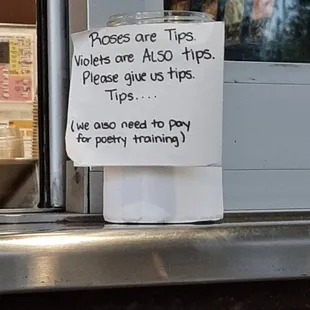 Roses are Tips.
Violets are ALSO tips.
Please give us tips.
Tips....
(we also need to pay
for poetry training)